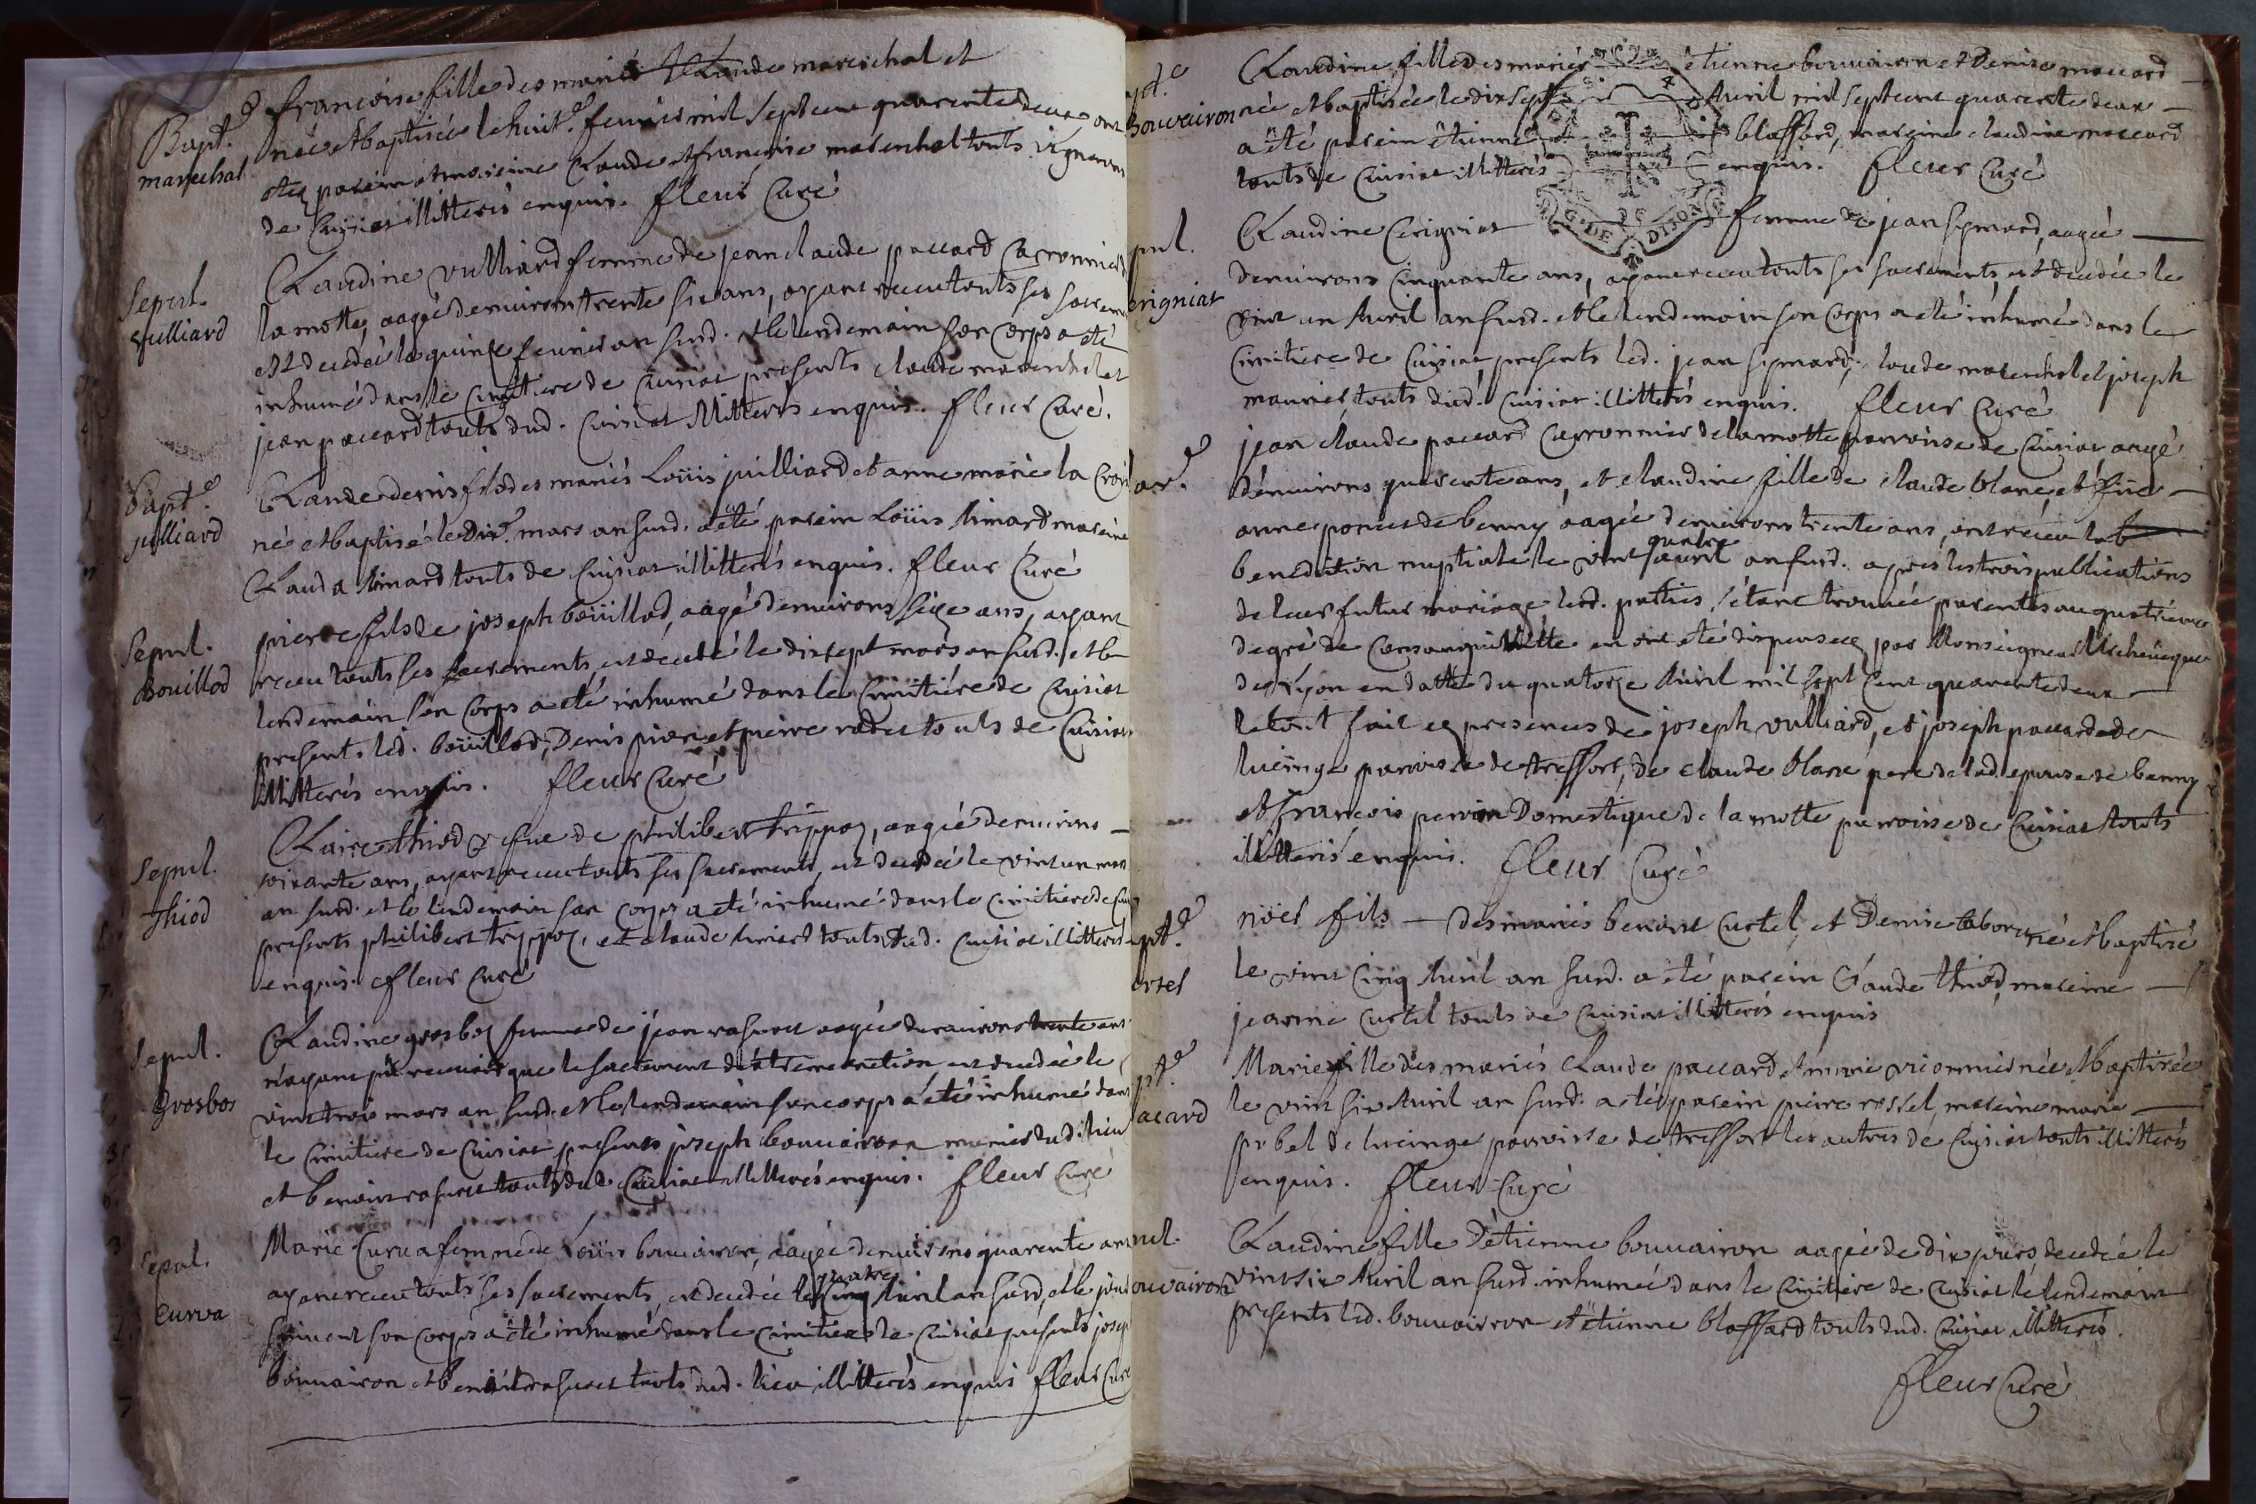 Bapt.e
marechal
francoise fille des mariés Claude mareschal et
née et baptisée le huit.e feurier mil septcent quarente deux ont
étez parein et mareine Claude et francoise mareschal touts vignerons
de Cuisiat illitterés enquis. fleur Curé
Sepul.
vulliard
Claudine vulliard femme de jean claude paccard Charronnier de
la motte, aagée d'enuiron trente six ans, ayant receu touts ses sacrem
est decedée le quinze feurier an susd. et le lendemain son corps a été
inhumé dans le cimitiere de Cuisiat presents claude mareschal et
jean paccard touts dud. Cuisiat illitterés enquis. fleur Curé.
Bapt.e
julliard
Claude denis fils des mariés Loüis juilliard et anne marie la Croix
né et baptisé le dix.e mars an susd. a été parein Loüis Amard mareine
Clauda Amard touts de Cuisiat illitterés enquis. fleur Curé
Sepul.
Bouillod
pierre fils de joseph boüillod, aagé d'enuirons seize ans, ayant
receu touts ses sacrements, est decedé le dixsept mars an susd. et le
lendemain son corps a été inhumé dans le Cimitiére de Cuisiat
presents led. boüillod, Denis et pierre touts de Cuisiat
illitterés enquis. fleur Curé
Sepul.
Thiod
Claire thiod vefue de philibert trippoz, aagée d'enuirons
soixante ans, ayant receu touts ses sacrements, est decedée le vint un mars
an susd. et le lendemain son corps a été inhumé dans le Cimitiere de Cuis
presents philibert trippoz, et claude touts dud. Cuisiat illitterés
enquis. fleur Curé
Sepul.
Grosbos
Claudine grosboz femme de jean rasurel aagée d'enuirons trente ans
n'ayant pû receuoir que le sacrement d'extreme onction est decedée le
vint trois mars an susd. et le lendemain son corps a été inhumé dans
le Cimitiere de Cuisiat presents joseph bouuairon dud. lieu
et benoit rasurel touts dud. Cuisiat illitterés enquis. fleur Curé
Sepul.
Curva
Marie Curua femme de Loüis bouuairon, aagée d'enuirons quarente ans
ayant receu touts ses sacrements, est decedée le quatre Auril an susd, et le jour
suiuent son corps a été inhumé dans le cimitiere de Cuisiat presents josep
bouuairon et benoit rasurel touts dud. lieu illitterés enquis fleur Curé
pt.e
Bouvairon
Claudine fille des mariés étienne bouuairon et Denise maccard
née et baptisée le dix sept Auril mil septcent quarente deux
a été parein étienne blaffard, mareine claudine maccard
touts de Cuisiat illitterés enquis. fleur Curé
pul.
erigniat
Claudine Cerigniat femme de jean symard, aagée
d'enuirons Cinquante ans, ayant receu touts ses sacrements, est decedée le
vint un Auril an susd. et le lendemain son corps a été inhumé dans le
Cimitiere de Cuisiat, presents led. jean symard, claude mareschal et joseph
maurier, touts dud. Cuisiat illitterés enquis. fleur Curé
ar.e
jean claude paccard Charronnier de la motte parroisse de Cuisiat aagé
d'enuirons quarente ans, et claudine fille de claude blanc et füe
anne poncet de benny aagée d'enuirons trente ans, ont receu la
benediction nuptiale le vint quatre auril an susd. apres les trois publications
de leur futur mariage lesd. parties s'étant trouuée parentes au quatriéme
degré de Consanguinitté en ont été dispensez par Monseigneur l'Archeuesque
de Lyon en datte du quatorze Auril mil sept cent quarente deux
le tout fait ez presences de joseph vulliard, et joseph paccard de
lucinge parroisse de treffort, de claude blanc pere de lad. epouse de benny
et francois perrin Domestique de la motte parroisse de Cuisiat touts
illitterés enquis. fleur Curé
pt.e
urtel
nöel fils des mariés benoit Curtel, et Denise né et baptisé
le vint Cinq Auril an susd. a été parein Claude thiod, mareine
jeanne Curtel touts de Cuisiat illitterés enquis
pt.e
acard
Marie fille des mariés Claude paccard et marie vionnier née et baptisée
le vint six Auril an susd. a été parein pierre rossel, mareine marie
probel de lucinge parroisse de treffort les autres de Cuisiat touts illitterés
enquis. fleur Curé
nul.
ouvairon
Claudine fille d'étienne bouuairon aagée de dix jours, decedée le
vint six Auril an susd. inhumée dans le Cimitiere de Cuisiat le lendemain
presents led. bouuairon et étienne blaffard touts dud. Cuisiat illitterés.
fleur Curé